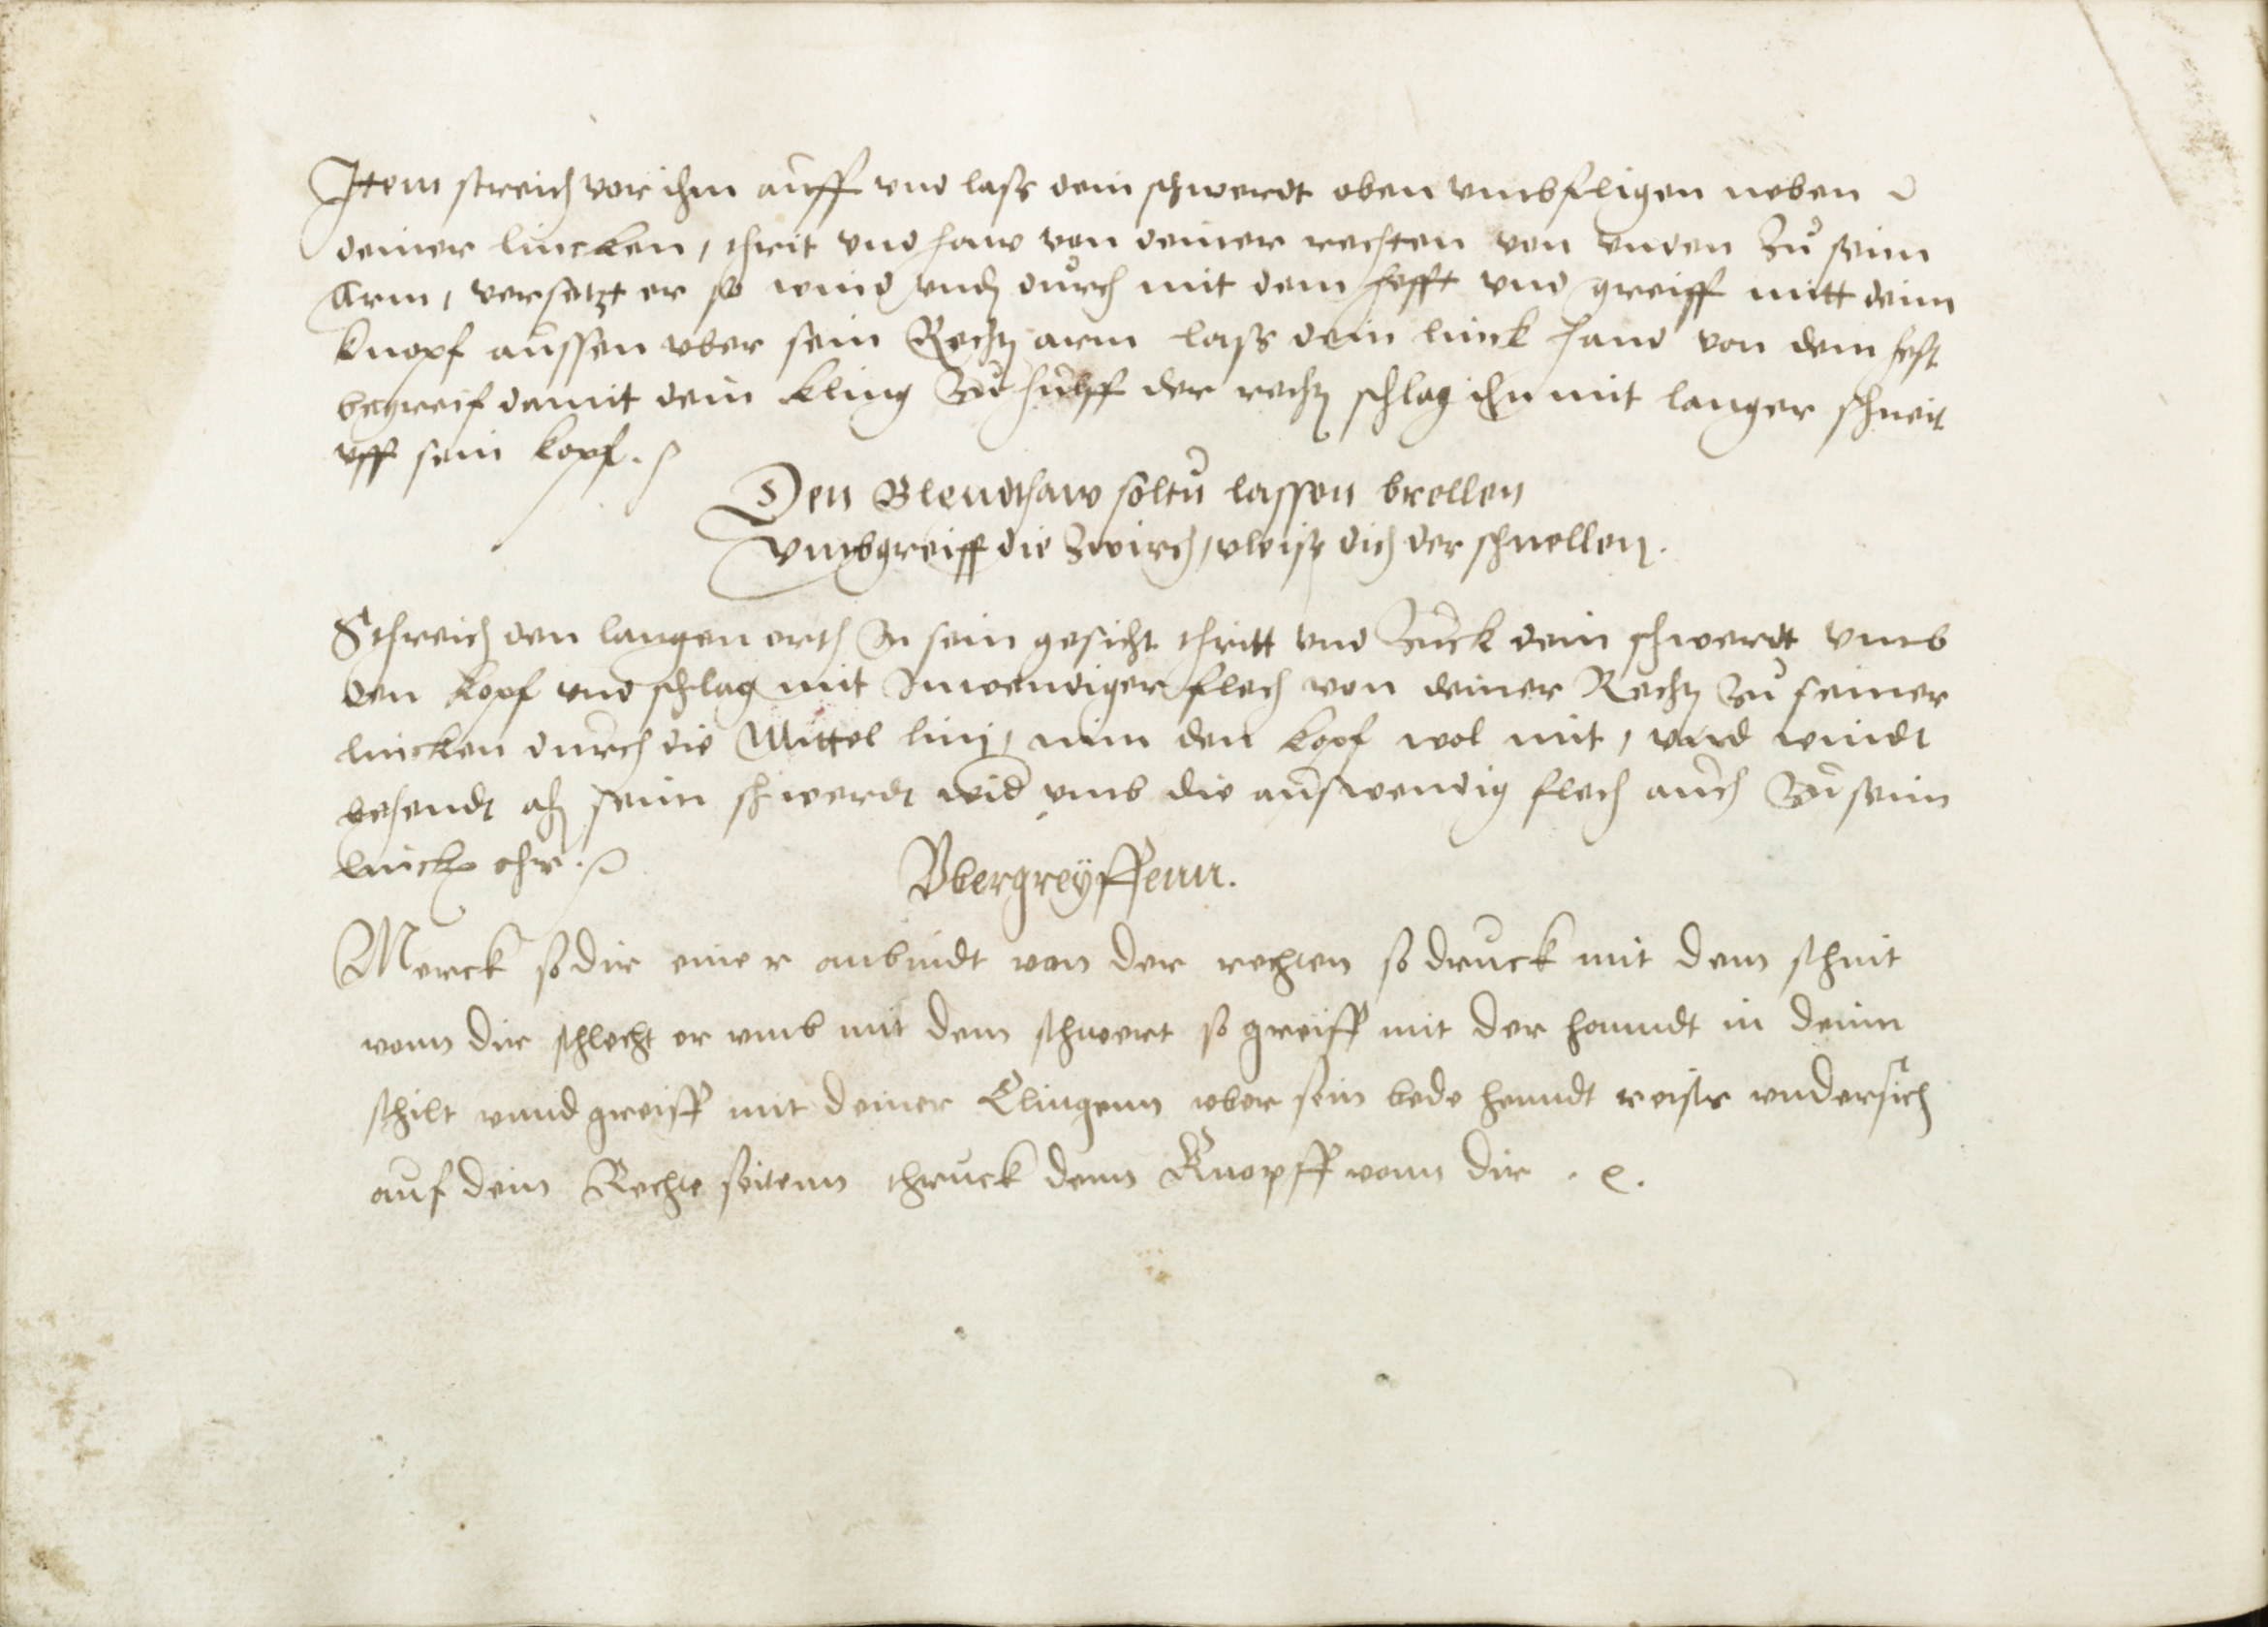 Item streich vor ihm auff vnd lass dein schwerdt oben vmbfligen neben
deiner lincken, thrit vnd haw von deiner rechten von vnden zu seim
Arm, versetzt er so wind vnden durch mit dem hefft vnd greiff mitt deim
knopf aussen vber sein Rechten arm lass dein linck hand von dem heft
begreif damit dein kling zu hülff der rechten schlag ihn mit langer schneit
vff sein kopf.
Den Blendthaw soltu lassen brellen
Vmbgreiff die zwirch, vleiss dich der schnellen.
Sthreich den langen orth In sein gesicht thritt vnd zuck dein schwerdt vmb
den kopf vnd schlag mit Inwendiger flech von deiner Rechten zu seiner
lincken durch die Mittel linj, nim den kopf wol mit, vnd windt
behendt an seim schwerdt wid vmb die auswendig flech auch zu seim
lincken ohr.
Vbergreyffenn.
Merck so dir einer anbindt von der rechten so druck mit dem schnit
vonn dir schlecht er vmb mit dem schwert so greiff mit der hanndt in deim
schilt vnnd greiff mit deiner Clingenn vber sein bede henndt reiss vndersich
auf dein Rechte seitenn thruck denn Knopff vonn dir . e.